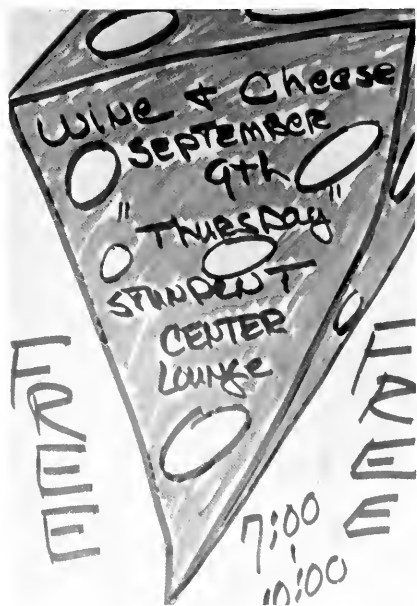 Wine & Cheese
SEPTEMBER
9th
"THURSDAY"
STUNDENT
CENTER
Lounge
FREE
FREE
7:00
10:00